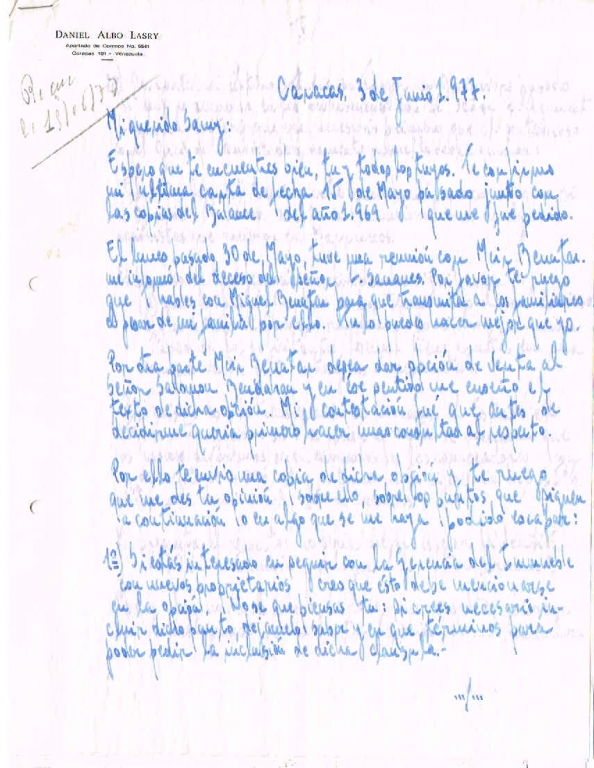 DANIEL ALBO LASRY
Apartado de Correos No. 5541
Caracas 101 - Venezuela
Caracas, 3 de Junio 1.977.
Mi querido Samy:
Espero que te encuentres bien, tu y todos los tuyos. Te confirmo
mi ultima carta de fecha 15 de Mayo pasado junto con
las copias del Balance del año 1.969 que me fue pedido.
El lunes pasado, 30 de Mayo, tuve una reunión con Meir Benatar.
me informó del deceso del Señor Sananes. Por favor te ruego
que hables con Miguel Benatar para que transmita a los familiares
el pesar de mi familia por ello. Tu lo puedes hacer mejor que yo.
Por otra parte Meir Benatar desea dar opción de Venta al
Señor Salomon Bendaran y en ese sentido me enseñó el
texto de dicha opción. Mi contestación fué que antes de
decidirme queria primero hacer unas consultas al respecto.
Por ello te envio una copia de dicha opción y te ruego
que me des tu opinión sobre ello, sobre los puntos que siguen
a continuación o en algo que se me haya podido escapar:
1º) Si estás interesado en seguir con la Gerencia del Inmueble
con nuevos proprietarios creo que esto debe mencionarse
en la opción. No se que piensas tu: si crees necesario in-
cluir dicho punto, dejamelo saber y en que términos para
poder pedir la inclusión de dicha clausula.-
.../...